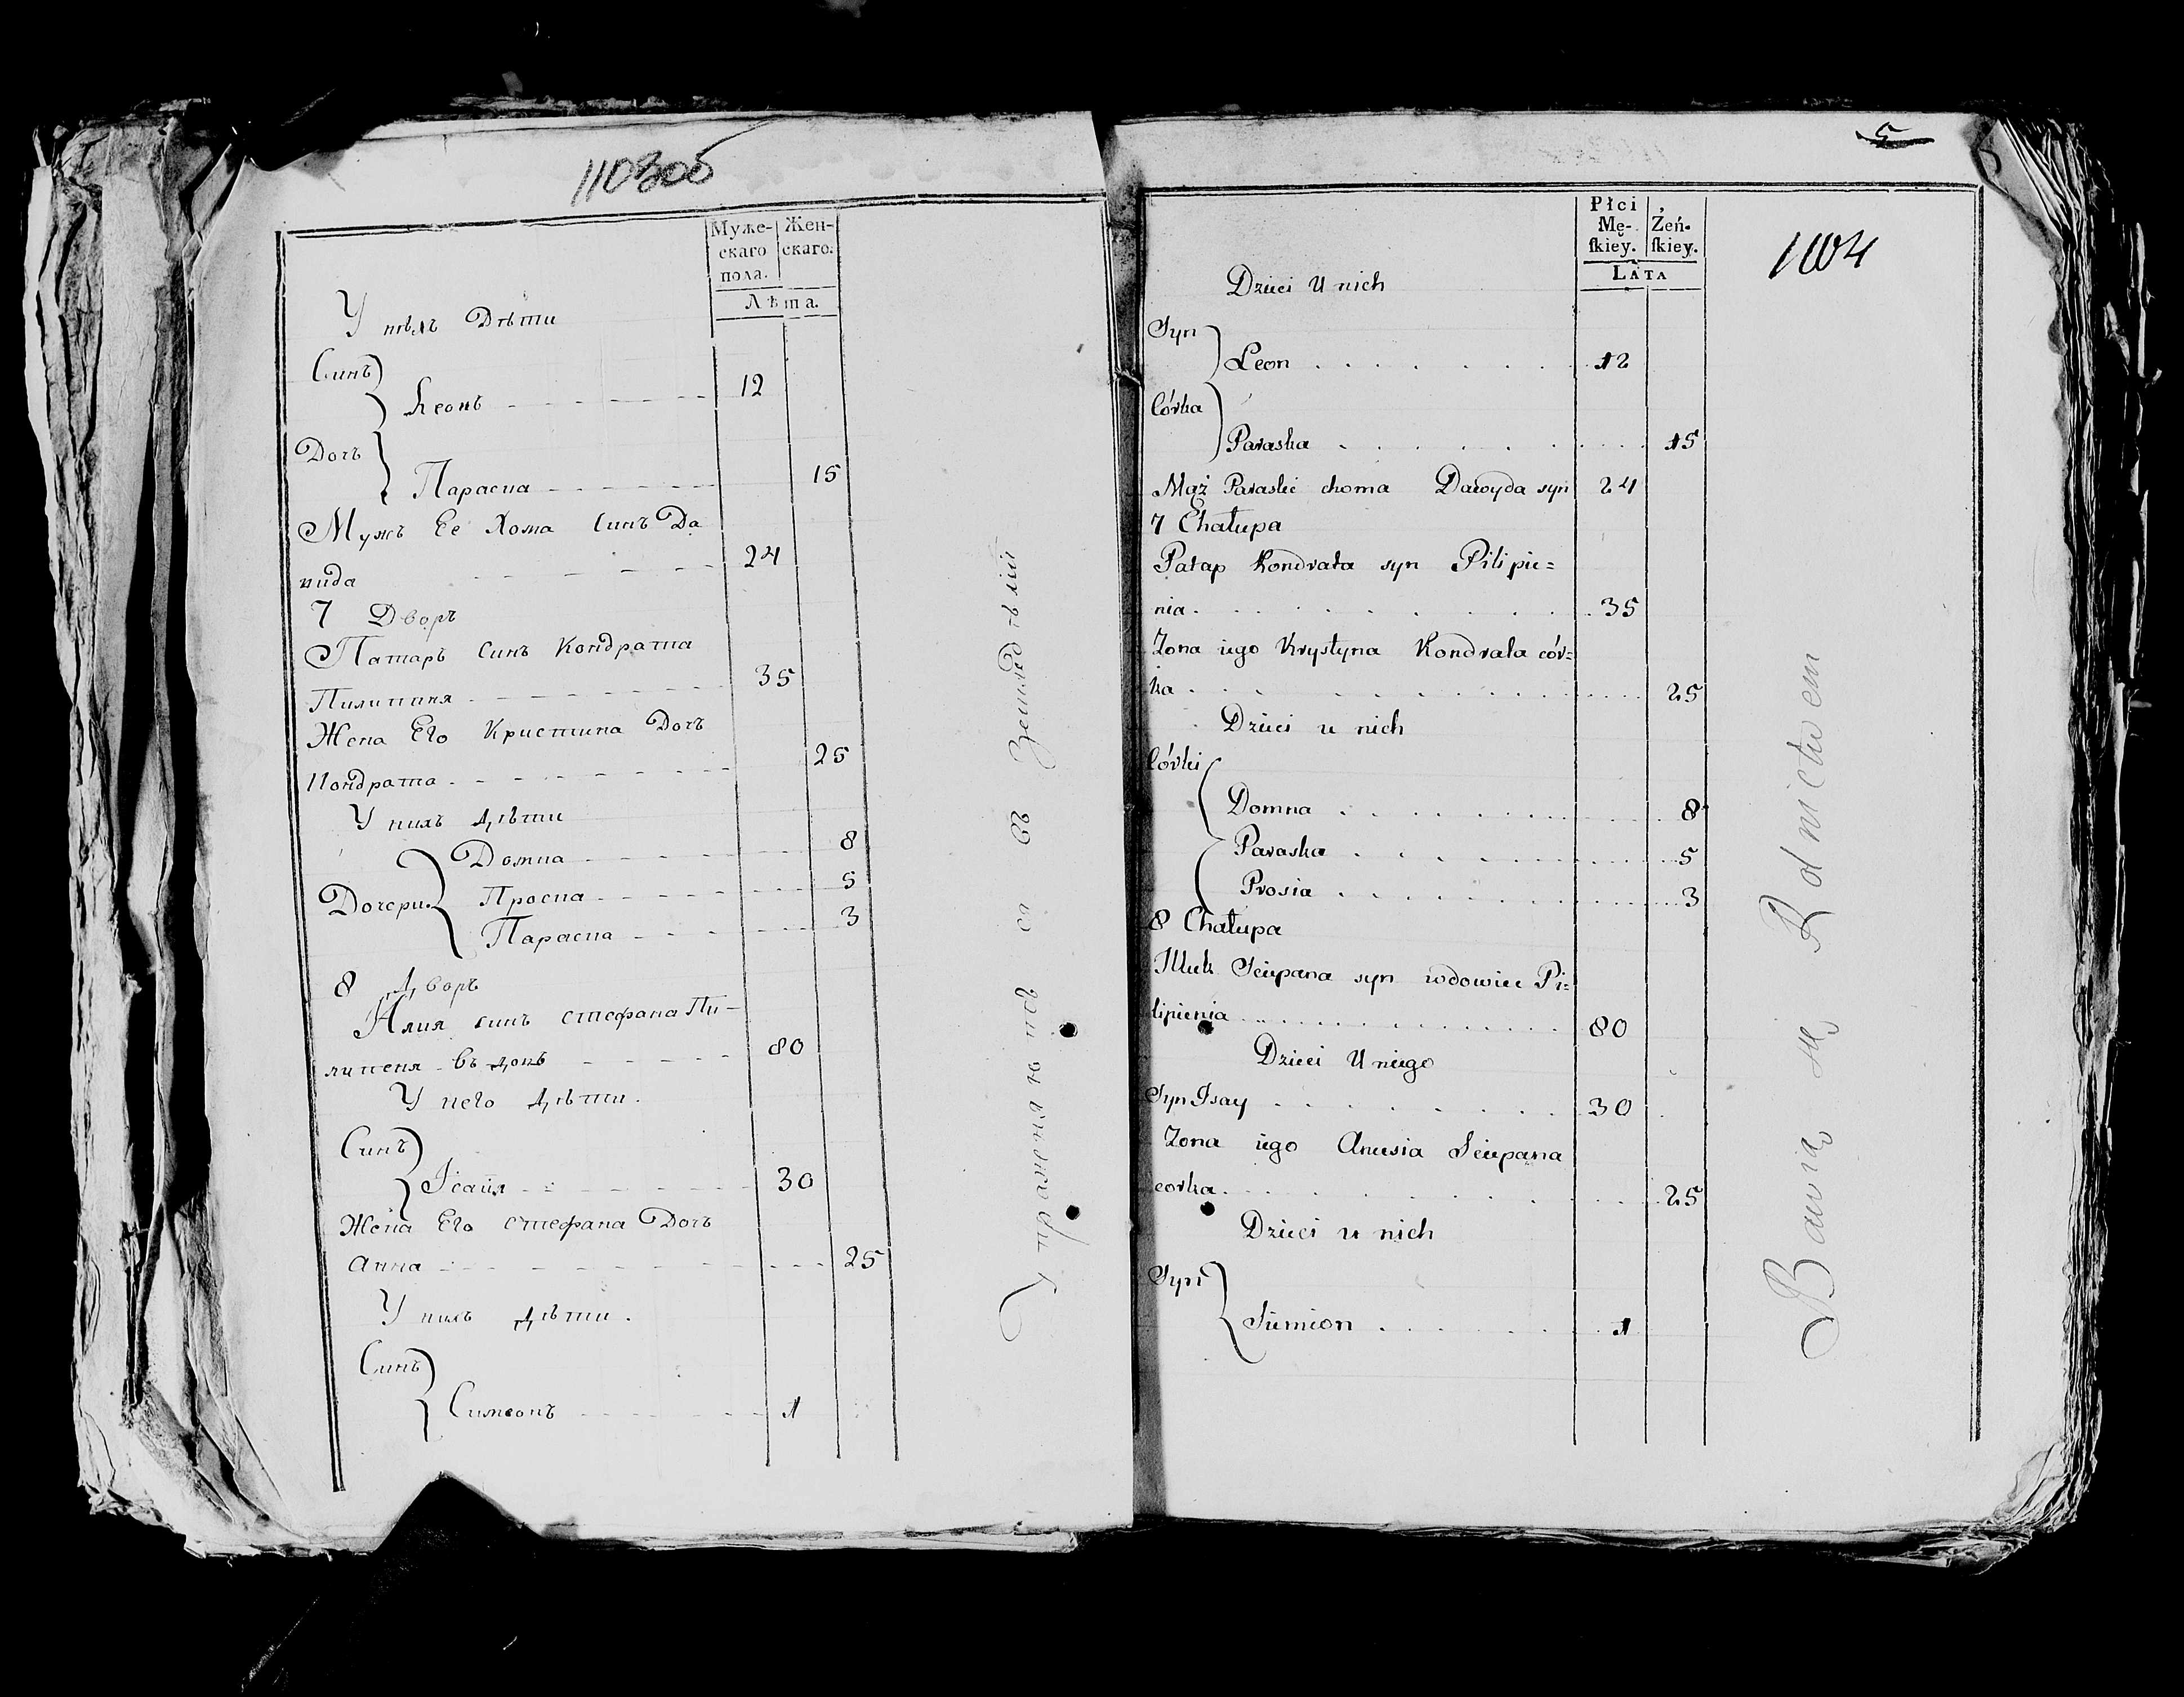 1103об
Муже-
скаго
пола.
Жен-
скаго.
Лѣта.
У нѣхъ Дѣти
Синъ
Леонъ 12
Дочь
Параска 15
Мужъ Ее Хома Синъ Да
вида 24
7 Дворъ
Патапъ Синъ Кондрата
Пилипиня 35
Жена Его Кристина Дочъ
Кондрата 25
У нихъ Дѣти
Домна 8
Дочери Проска 5
Параска 3
8 Дворъ
Илия синъ Стефана Пи-
липеня 80
У него Дѣти.
Синъ
Ісаия 30
Жена Его Стефана Дочъ
Анна 25
У нихъ Дѣти.
Синъ
Симеонъ 1
Упраженяютъ ся въ Земледѣлій
5
1104
Płci
Mę-
skiey.
Żeń-
skiey.
LATA
Dzieci U nich
Syn
Leon 12
Córka
Paraska 15
Mąż Paraski choma Dawyda syn 24
7 Chałupa
Patap Kondrata syn Pilipie=
nia 35
Żona iego Krystyna Kondrata cór=
ka 25
Dzieci u nich
Córki
Domna 8
Paraska 5
Prosia 3
8 Chałupa
Illuk Sciepana syn wdowiec Pi=
lipienia 80
Dzieci U niego
Syn Isay 30
Żona iego Anusia Sciepana
corka 25
Dzieci u nich
Syn
Siemion 1
Bawią się Rolnictwem